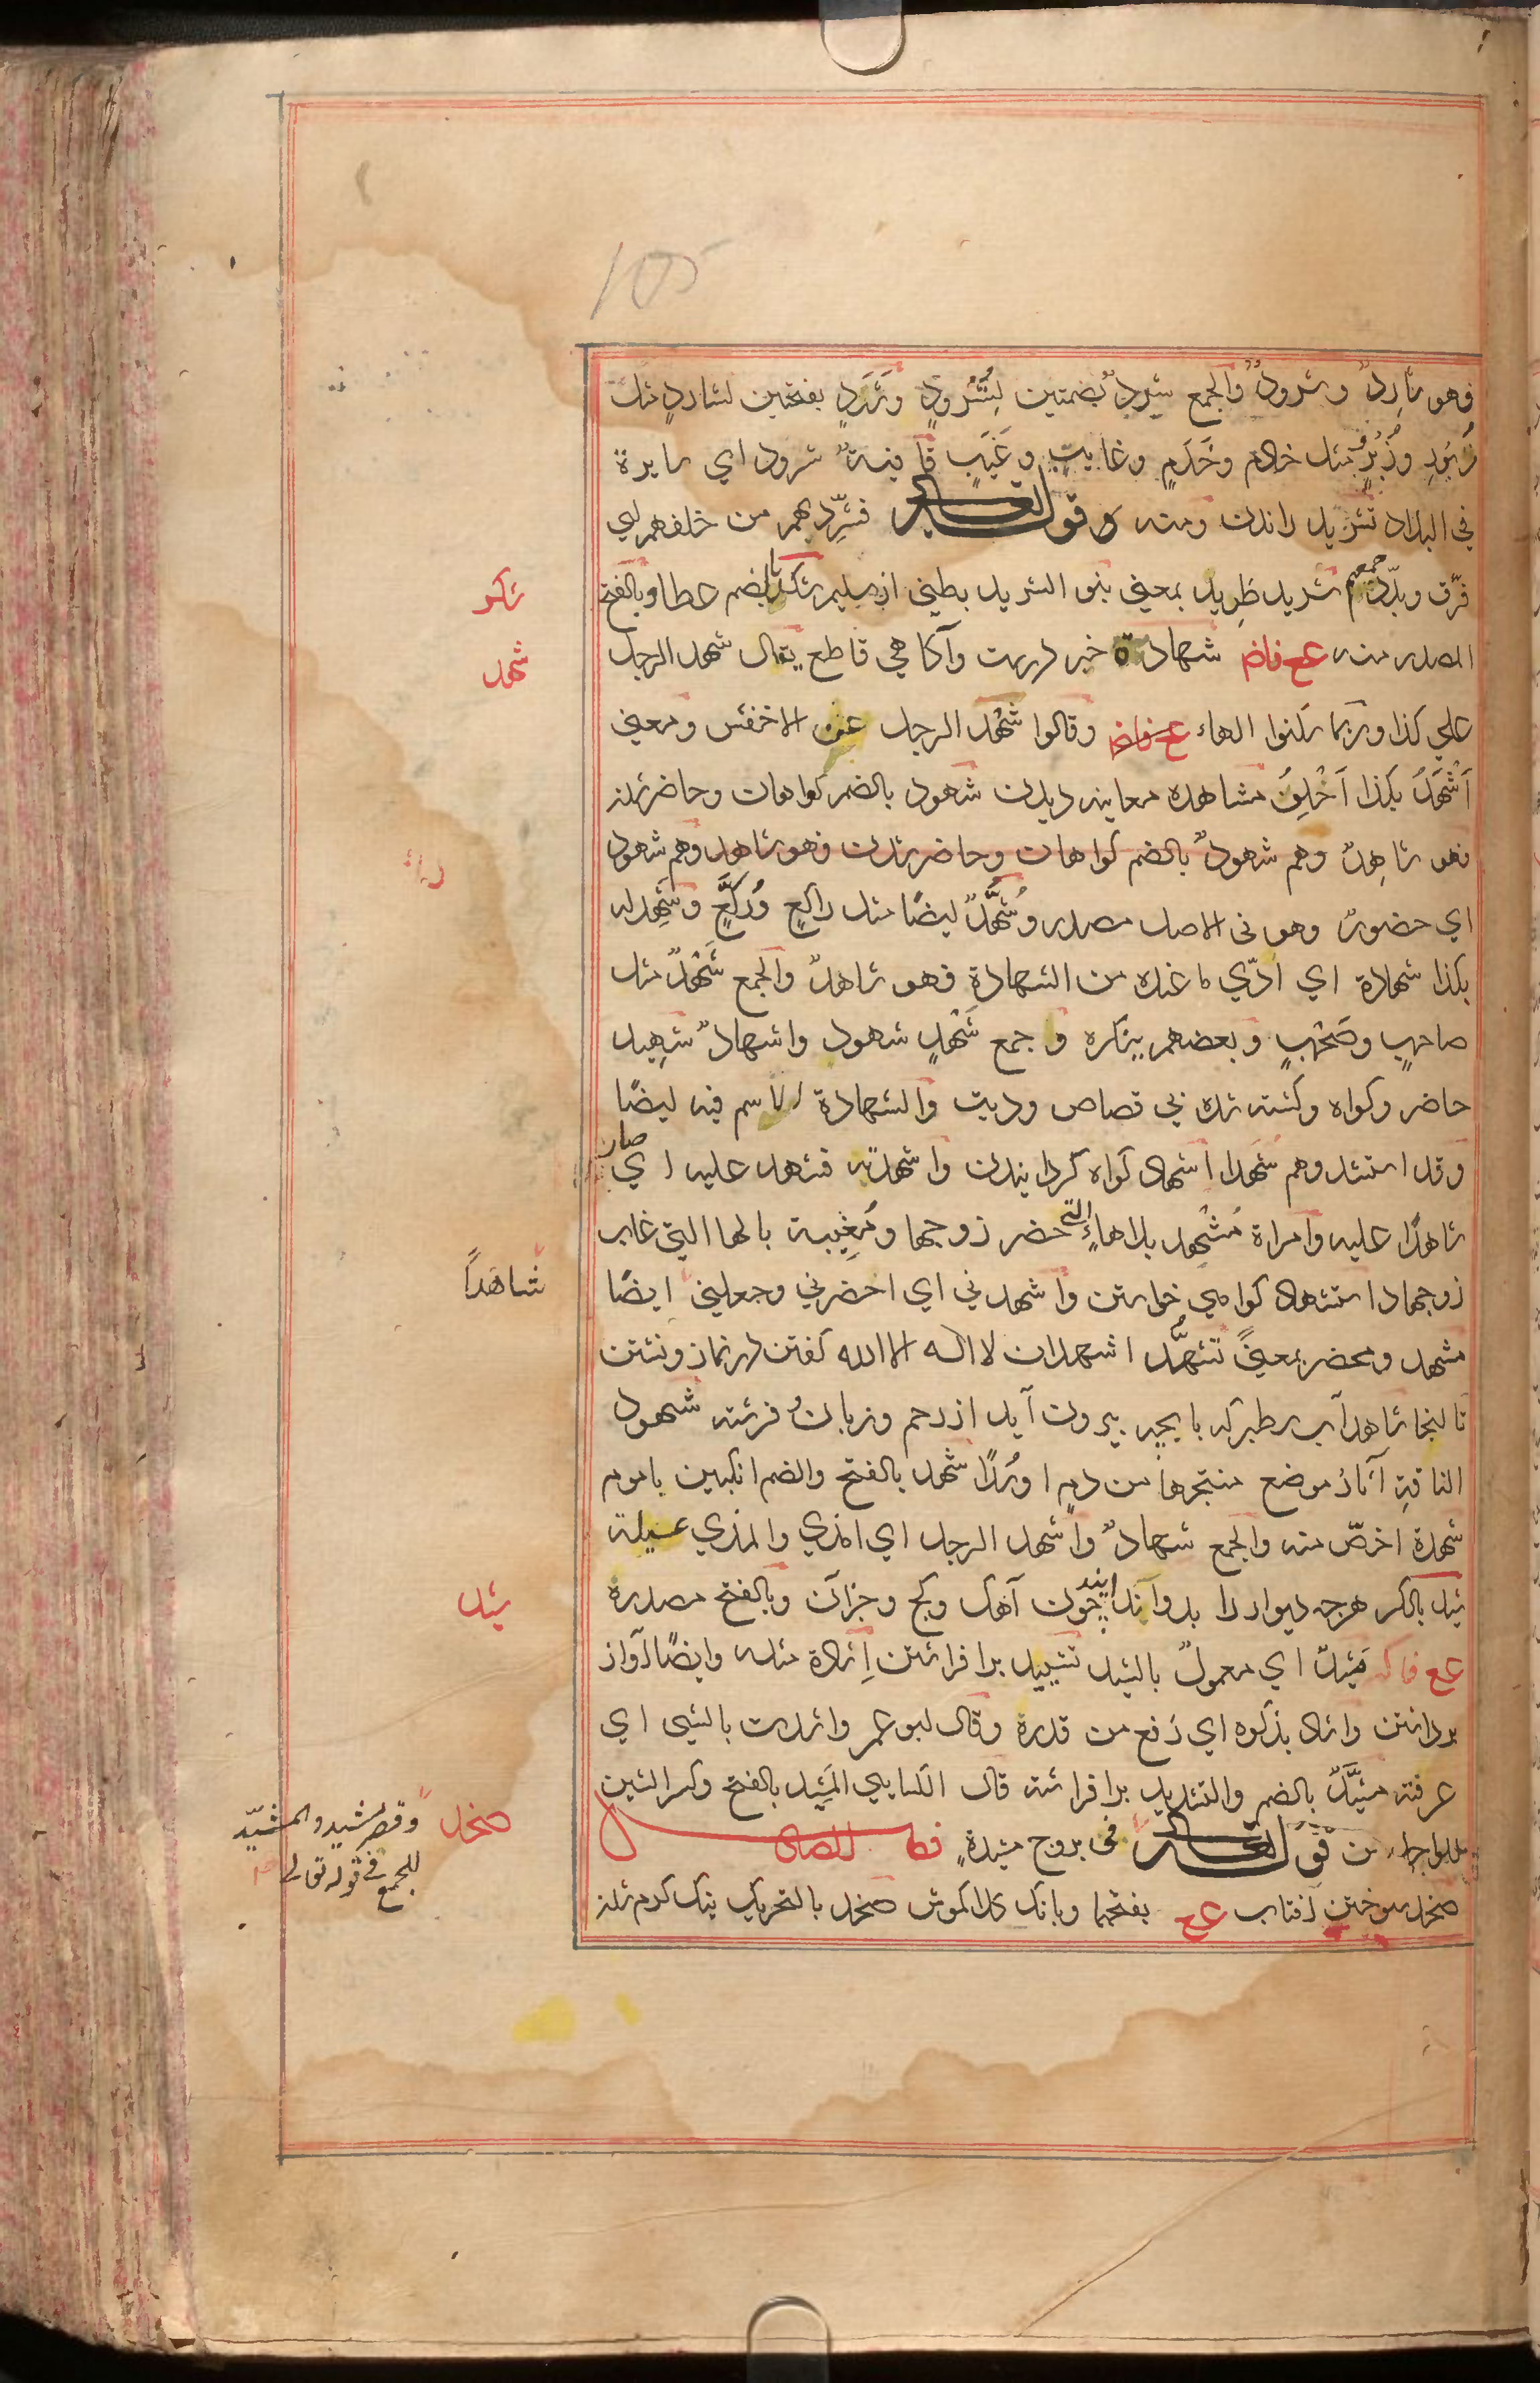 105
فهو شارِدٌ وشرودٌ والجمع شردٌ بضمتين لِشَرُودٍ وشَرَدٍ بفتحين لشاردٍ مثل
زَبُورٍ وزُبُرٍ مثل خادم وخَدَمٍ وغايبٍ وغَيَبٍ قافيةٌ شرود اي سايرة
في البلاد تشريد راندن ومنه قوله تعالى فشَرِّد بهم من خلفهم اي
فرّق وبدّد جمعهم شريد طريد بمعنى بنو الشريد بطنى از سليم شكد بالضم عطا وبالفتح
المصدر منه عع فاض شهادة خبر درست وآكاهي قاطع يقال شهد الرجل
على كذا وربما سكنوا الهاء وقالوا شَهْد الرجل عن الاخفش ومعنى
اَشْهَدُ بكذا اَحْلِفُ مشاهده معاينه ديدن شهود بالضم كواهان وحاضر شدن
فهو شاهِدٌ وهم شهودٌ بالضم كواهان وحاضر شدن فهو شاهد وهم شهود
اي حضورٌ وهو في الاصل مصدر وشُهَّدٌ ايضًا مثل راكعٍ ورُكَّعٍ وشَهِد له
بكذا شهادة اي ادّي ما عنده من الشهادةِ فهو شاهدٌ والجمع شَهْدٌ مثل
صاحبٍ وصَحْبٍ وبعضهم ينكره وجمع شَهْدٍ شهود واشهادٌ شهِيد
حاضر وكواه وكشته شده في قصاص وديت والشهادة الاسم فيه ايضًا
وقد استشهد وهم شهدا اشهاد كواه كردانيدن واشهدته فشهد عليه اي صار
شاهدًا عليه وامراة مُشْهِد بلا هاءٍ التي حضر زوجها ومُغِيبة بالها التي غاب
زوجها استشهاد كواهي خواستن واشهدني اي احضرني وجعلني ايضًا
مشهد ومحضر بمعنىً تشهُّد اشهد ان لا اله الا الله كفتن در نماز ونشستن
تا اينجا شاهد آب سطبر كه با بچه بيرون آيد از رحم وزبان وفرشته شهود
الناقةِ آثارُ موضع منتجها من دمٍ او سَلًا شهد بالفتح والضم انكبين با موم
شهدة اخصّ منه والجمع شهادٌ واشهد الرجل اي امذي والمذي عسيلة
شيد بالكسر هرچه ديوار را بدو اندايند چون آهك وكچ وجزآن وبالفتح مصدره
عع فاك مَشِيدٌ اي معمولٌ بالشيد تشييد برافراشتن اِشادة مثله وايضًا آواز
برداشتن واشاد بذكره اي رفع من قدره وقال ابو عمر واشدت بالشي اي
عرفته مشيَّدٌ بالضم والتشديد برافراشته قال الكسايي المَشِيد بالفتح وكسر الشين
للواحد من قوله تعالى في بروج مشيدةٍ فصل الصاد
صخد سوختن آفتاب عع بفتحها وبانك كلاكموش صخد بالتحريك نيك كرم شدن
شكد
شهد
شاهدًا
شيد
صخد
وقصر مشيد والمشيّد
للجمع في قوله تعالى